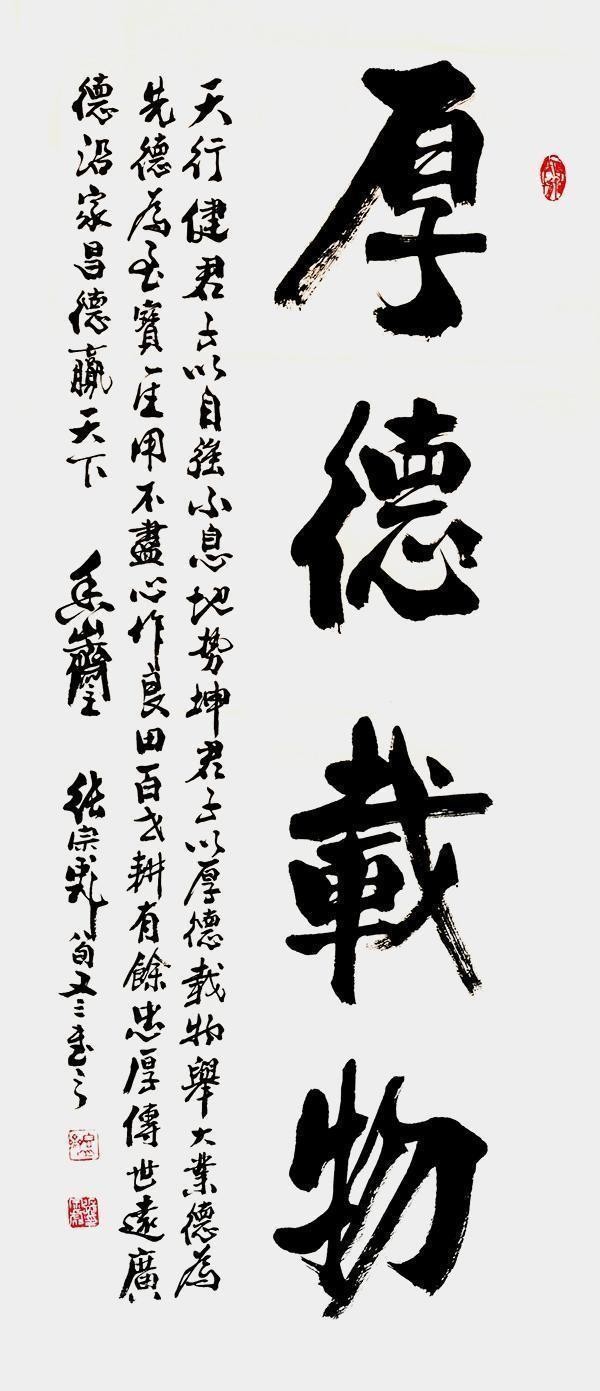 厚德載物
天行健君子以自強不息地势坤君子以厚德載物舉大業德為
先德為至寶一生用不盡心作良田百世耕有餘忠厚傳世遠廣
德沿家昌德贏天下 张宗